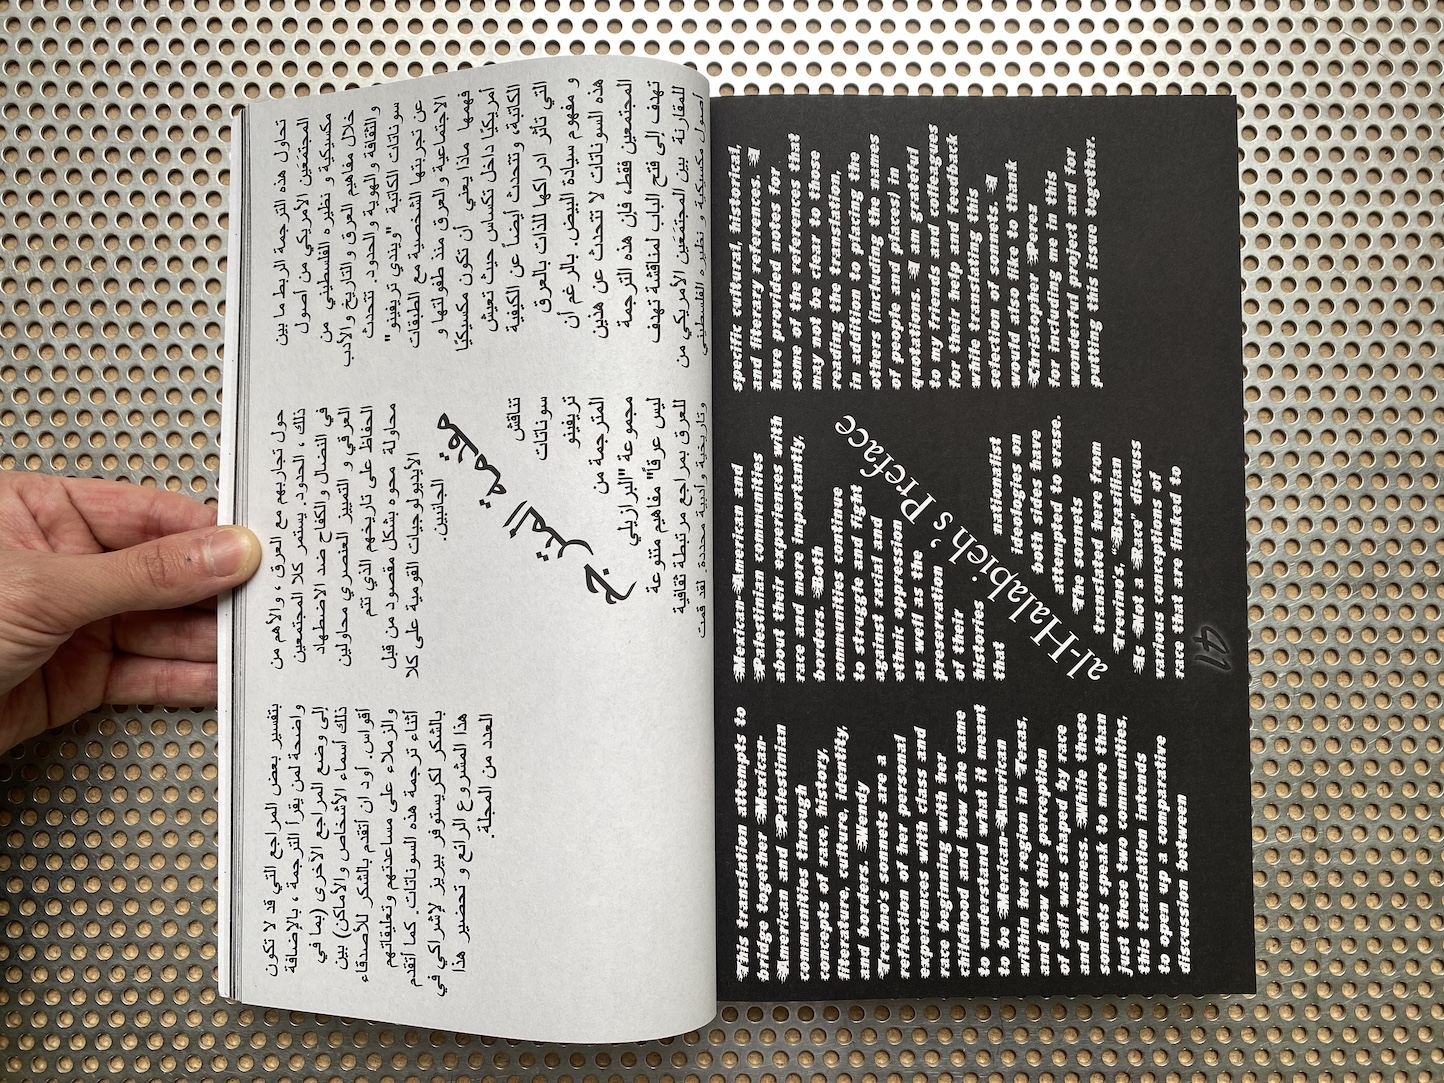 تحاول هذه الترجمة الربط ما بين
المجتمعَين الأمريكي من أصول
مكسيكية و نظيره الفلسطيني من
خلال مفاهيم العرق و التاريخ والأدب
والثقافة والهوية والحدود. تتحدث
سوناتات الكاتبة "ويندي تريفينو"
عن تجربتها الشخصية مع الطبقات
الاجتماعية والعرق منذ طفولتها و
فهمها ماذا يعني أن تكون مكسيكيًا
أمريكيًا داخل تكساس حيث تعيش
الكاتبة، وتتحدث أيضاً عن الكيفية
التي تأثر ادراكها للذات بالعرق
و مفهوم سيادة البيض. بالرغم أن
هذه السوناتات لا تتحدث عن هذين
المجتمعين فقط، فإن هذه الترجمة
تهدف إلى فتح الباب لمناقشة تهدف
للمقارنة بين المجتمعَين الأمريكي من
أصول مكسيكية و نظيره الفلسطيني
حول تجاربهم مع العرق ، والأهم من
ذلك ، الحدود. يستمر كلا المجتمعين
في النضال والكفاح ضد الاضطهاد
العرقي و التمييز العنصري محاولين
الحفاظ على تاريخهم الذي تتم
محاولة محوه بشكل مقصود من قبل
الأيديولوجيات القومية على كلا
الجانبين.
مقدمة المترجم
تناقش
سوناتات
تريفينو
المترجمة من
مجموعة "البرازيلي
ليس عرقاً" مفاهيم متنوعة
للعرق بمراجع مرتبطة ثقافية
وتاريخية وأدبية محددة. لقد قمت
بتفسير بعض المراجع التي قد لا تكون
واضحة لمن يقرأ الترجمة ، بالإضافة
إلى وضع المراجع الأخرى (بما في
ذلك أسماء الأشخاص والأماكن) بين
أقواس. أود ان أتقدم بالشكر للأصدقاء
والزملاء على مساعدتهم وتعليقاتهم
أثناء ترجمة هذه السوناتات. كما أتقدم
بالشكر لكريستوفر بيريز لإشراكي في
هذا المشروع الرائع و تحضير هذا
العدد من المجلة.
This translation attempts to
bridge together Mexican-
American and Palestinian
communities through
concepts of race, history,
literature, culture, identity,
and borders. Wendy
Trevino's sonnets are a
reflection of her personal
experiences with class and
race beginning with her
childhood and how she came
to understand what it meant
to be Mexican American
within her region in Texas,
and how this perception
of self is shaped by race
and whiteness. While these
sonnets speak to more than
just these two communities,
this translation intends
to open up a comparative
discussion between
Mexican American and
Palestinian communities
about their experiences with
race and more importantly,
borders. Both
communities continue
to struggle and fight
against racial and
ethnic oppression
as well is the
preservation
of their
histories
that
nationalist
ideologies on
both sides have
attempted to erase.
The sonnets
translated here from
Trevino's, 'Brazilian
Is Not a Race' discuss
various conceptions of
race that are linked to
al-Halabieh's Preface
specific cultural, historical,
and literary references. I
have provided notes for
some of the references that
may not be clear to those
reading the translation,
in addition to placing the
others (including the names
of people and places) in
quotations. I am grateful
to my friends and colleagues
for their help and feedback
while translating this
selection of sonnets. I
would also like to thank
Christopher Perez
for including me in this
wonderful project and for
putting this issue together.
41